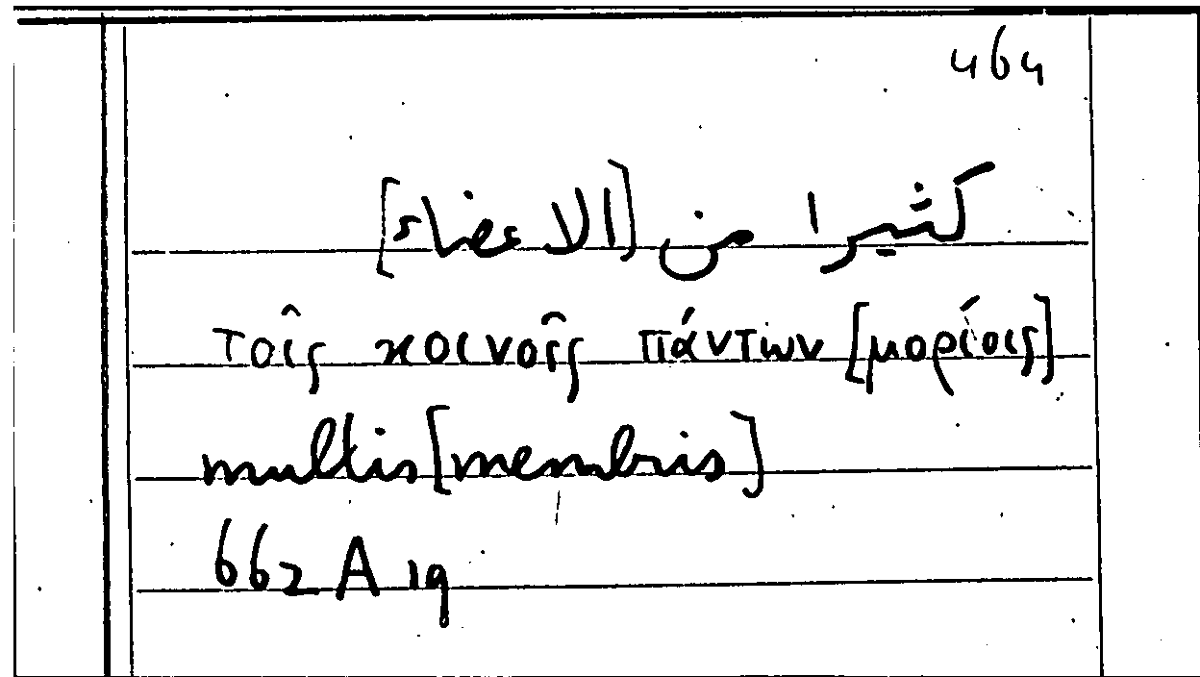 464
كثيرا من [الاعضاء]
τοῖς κοινοῖς πάντων [μορίοις]
multis [membris]
662 A 19